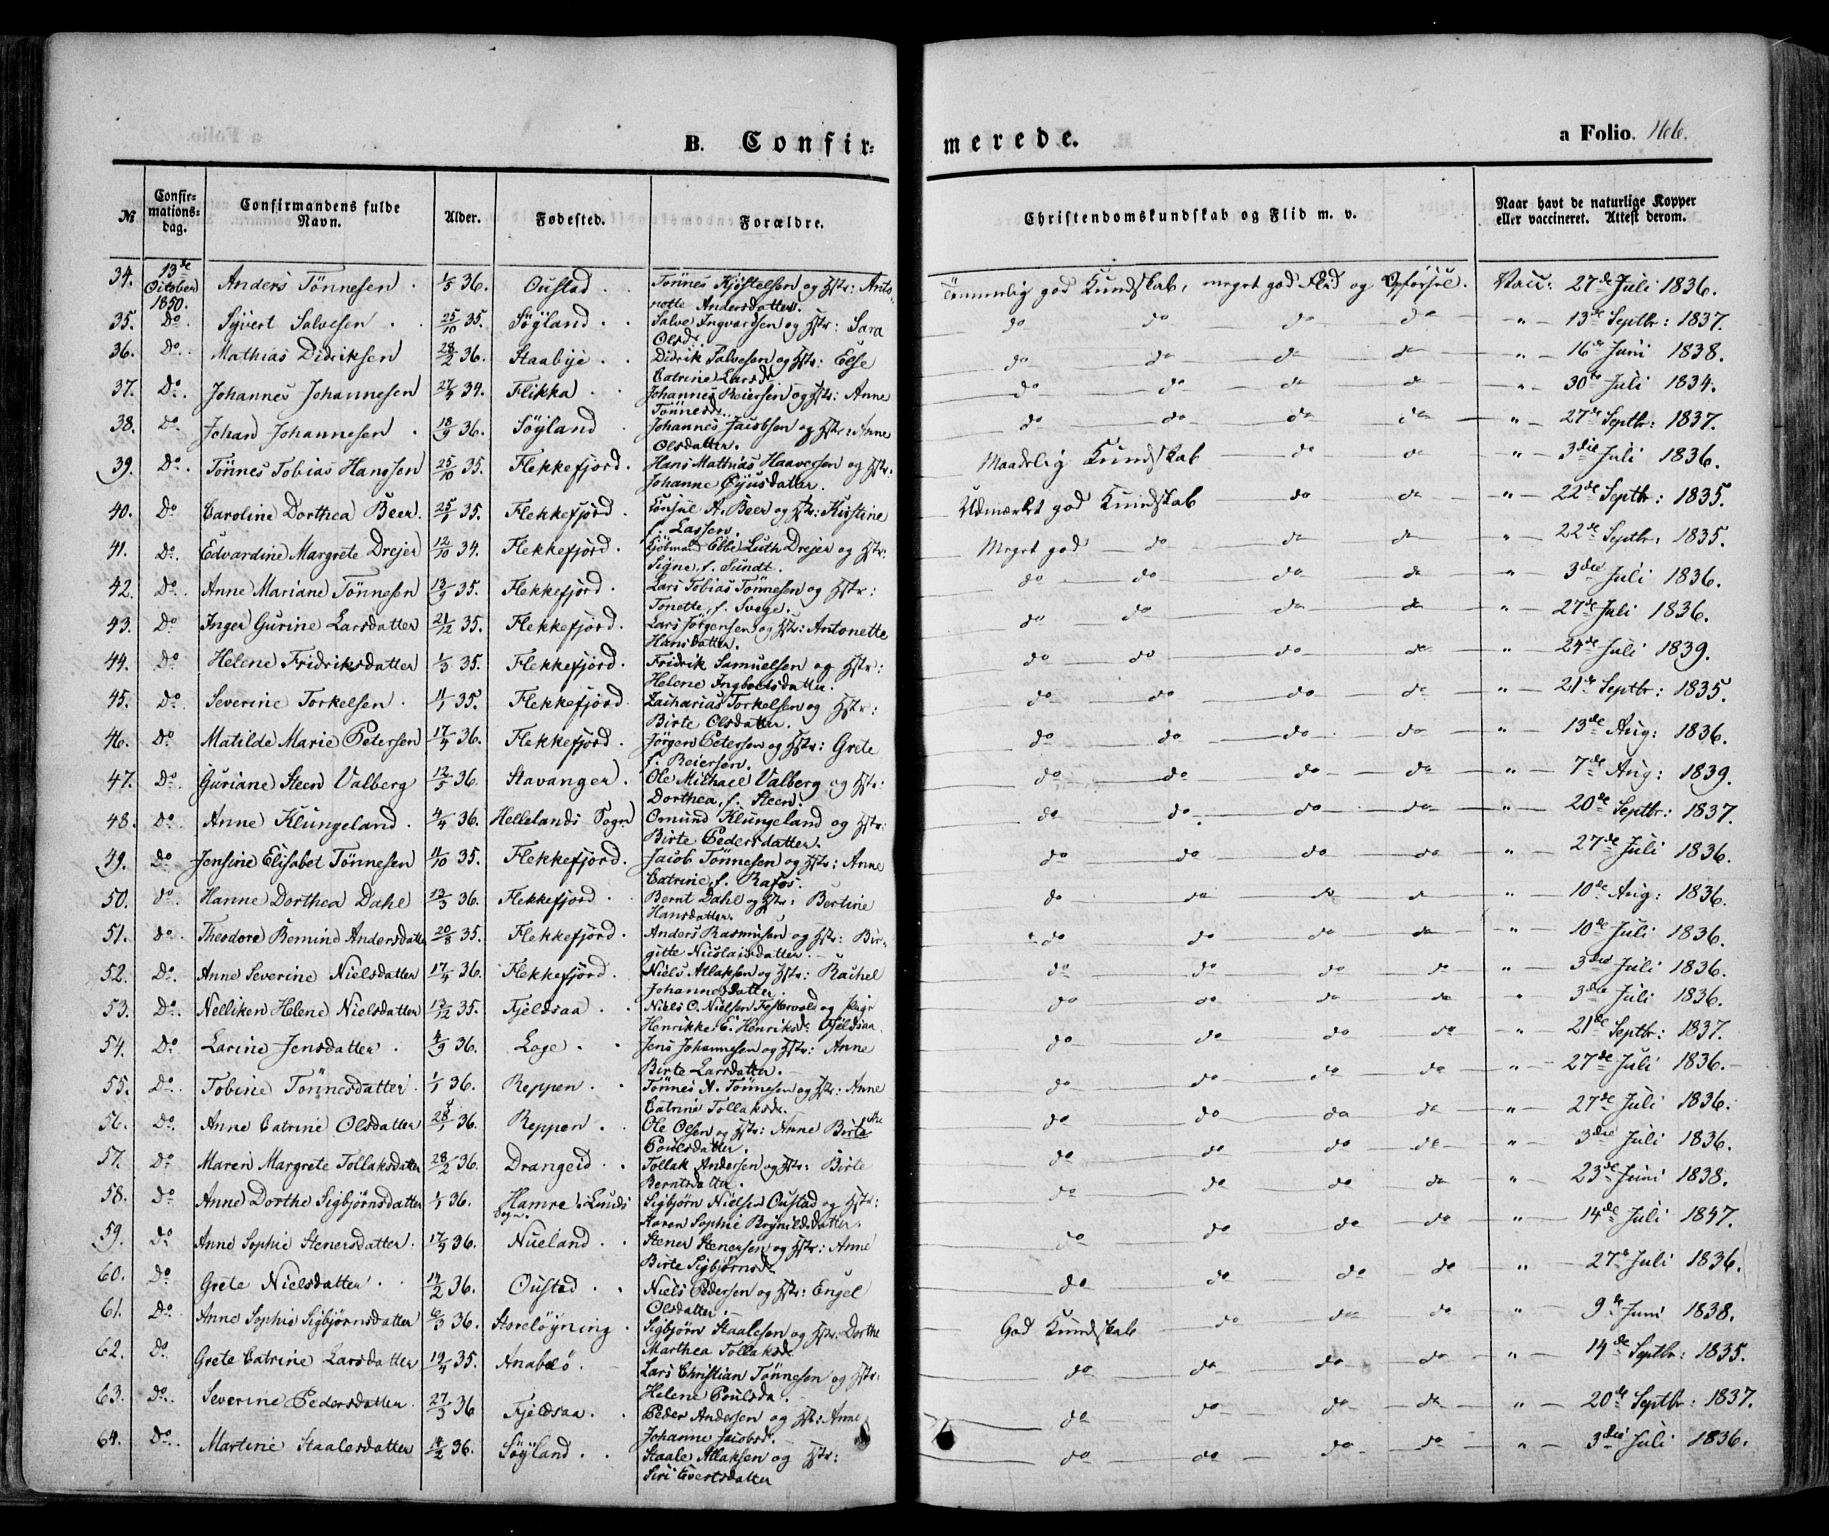 B. Confir- merede. a Folio.
№ Confirmationsdag. Confirmandens fulde Navn. Alder. Fødested. Forældre. Christendomskundskab og Flid m. v. Naar havt de naturlige Kopper eller vaccineret. Attest derom.
34. 13de October 1850. Anders Tönnesen. 36. Oustad. Tönnes Kjöstelsen og Hstr: Antonette Andersdatter. Temmelig god Kundskab, meget god Flid og Opförsel. Vacc: 27de Juli 1836.
35. Do. Syvert Salvesen. 25/10 35. Söyland. Salve Ingvardsen og Hstr: Sara Olsd. do do do do " 13de Septbr: 1837.
36. Do. Mathias Didriksen 28/2 36. Staabye. Didrik Salvesen og Hstr: Else Catrine Larsd. do do do do " 16de Juni 1838.
37. Do. Johannes Johannesen 34. Flikka. Johannes Reiersen og Hstr: Anne Tönnesd. do do do do " 30te Juli 1834.
38. Do. Johan Johannesen. 36. Söyland. Johannes Jacobsen og Hstr: Anne Olsdatter. do do do do " 27de Septbr: 1837.
39. Do. Tönnes Tobias Hansen 25/10 35. Flekkefjord. Hans Mathias Haaversen og Hstr: Johanne Öyusdatter. Maadelig Kundskab do do " 3die Juli 1836.
40. Do. Caroline Dorthea Beer. 35. Flekkefjord. Consul A. Beer og Hstr: Kirstine f. Lassen. Udmærket god Kundskab do do " 22de Septbr: 1835.
41. Do. Edvardine Margrete Drejer 12/10 34. Flekkefjord. Kjöbmand Ebbe Luth Drejer og Hstr: Signe, f. Sundt. Meget god do do do " 22de Septbr: 1835.
42. Do. Anne Mariane Tönnesen 13/9 35. Flekkefjord. Lars Tobias Tönnesen og Hstr: Tonette, f. Svege. do do do do " 3die Juli 1836.
43. Do. Inger Gurine Larsdatter 21/12 35. Flekkefjord. Lars Jörgensen og Hstr: Antonette Hansdatter. do do do do " 27de Juli 1836.
44. Do. Helene Fridriksdatter 35. Flekkefjord. Fridrik Samuelsen og Hstr: Helene Ingbretsdatter. do do do do " 24de Juli 1839.
45. Do. Severine Torkelsen. 35. Flekkefjord. Zacharias Torkelsen og Hstr: Birte Olsdatter. do do do do " 21de Septbr: 1835.
46. Do. Matilde Marie Petersen 36. Flekkefjord. Jörgen Petersen og Hstr: Grete f. Reiersen. do do do do " 13de Aug: 1836.
47. Do. Guriane Steen Valberg 36. Stavanger. Ole Michael Valberg og Hstr: Dorthea, f. Steen. do do do do " 7de Aug: 1839.
48. Do. Anne Klungeland. 4/4 36. Hellelands Sogn Omund Klungeland og Hstr: Birte Pedersdatter. do do do do " 20de Septbr: 1837.
49. Do. Jensine Elisabet Tönnesen 35. Flekkefjord. Jacob Tönnesen og Hstr: Anne Catrine, f. Rafos. do do do do " 27de Juli 1836.
50. do. Hanne Dorthea Dahl 36. Flekkefjord. Bernt Dahl og Hstr: Bertine Hansdatter. do do do do " 10de Aug: 1836.
51. do. Theodore Bernine Andersdatter 20/8 35. Flekkefjord. Anders Rasmusen og Hstr: Birgitte Nicolaisdatter. do do do do " 10de Juli 1836.
52. Do. Anne Severine Nielsdatter 36. Flekkefjord. Niels Atlaksen og Hstr: Rachel Johannesdatter. do do do do " 3die Juli 1836.
53. Do. Nelliken Helene Nielsdatter 13/12 35. Fjeldsaa. Niels O. Nielsen Festervold og Pige Henrikke E. Henriksd. Fjeldsaa do do do do " 3die Juli 1836.
54. Do. Larine Jensdatter. 36. Loge. Jens Johannesen og Hstr: Anne Birte Larsdatter. do do do do " 21de Septbr: 1837.
55. Do. Tobine Tönnesdatter. 36. Reppen. Tönnes A. Tönnesen og Hstr: Anne Catrine Tollaksd. do do do do " 27de Juli 1836.
56. Do. Anne Catrine Olsdatter 36. Reppen. Ole Olsen og Hstr: Anne Birte Poulsdatter. do do do do " 27de Juli 1836.
57. Do. Maren Margrete Tollaksdatter 28/2 36. Drangeid. Tollak Andersen og Hstr: Birte Berntsdatter. do do do do " 3die Juli 1836.
58. Do. Anne Dorthe Sigbjörnsdatter 36. Hamre i Lunds Sogn. Sigbjörn Nielsen Oustad og Hstr: Karen Sophie Brynildsdatter. do do do do " 23de Juni 1838.
59. Do. Anne Sophie Stenersdatter. 36. Nueland. Stener Stenersen og Hstr: Anne Birte Sigbjörnsd. do do do do " 14de Juli 1847.
60. Do. Grete Nielsdatter. 14/2 36. Oustad. Niels Pedersen og Hstr: Engel Olsdatter. do do do do " 27de Juli 1836.
61. Do. Anne Sophie Sigbjörnsdatter 6/3 36. Storelöyning. Sigbjörn Staalesen og Hstr: Dorthe Marthea Tollaksd. God Kundskab do do do " 9de Juni 1838.
62. Do. Grete Catrine Larsdatter 19/4 35. Anabelö. Lars Christian Tönnesen og Hstr: Helene Poulsda. do do do do " 14de Septbr: 1835.
63. Do. Severine Pedersdatter. 27/3 36 Fjeldsaa. Peder Andersen og Hstr: Anne Johanne Jacobsd. do do do do " 20de Septbr: 1837.
64. Do. Martine Staalesdatter 14/2 36. Söyland. Staale Atlaksen og Hstr: Siri Evertsdatter do do do do " 3die Juli 1836.